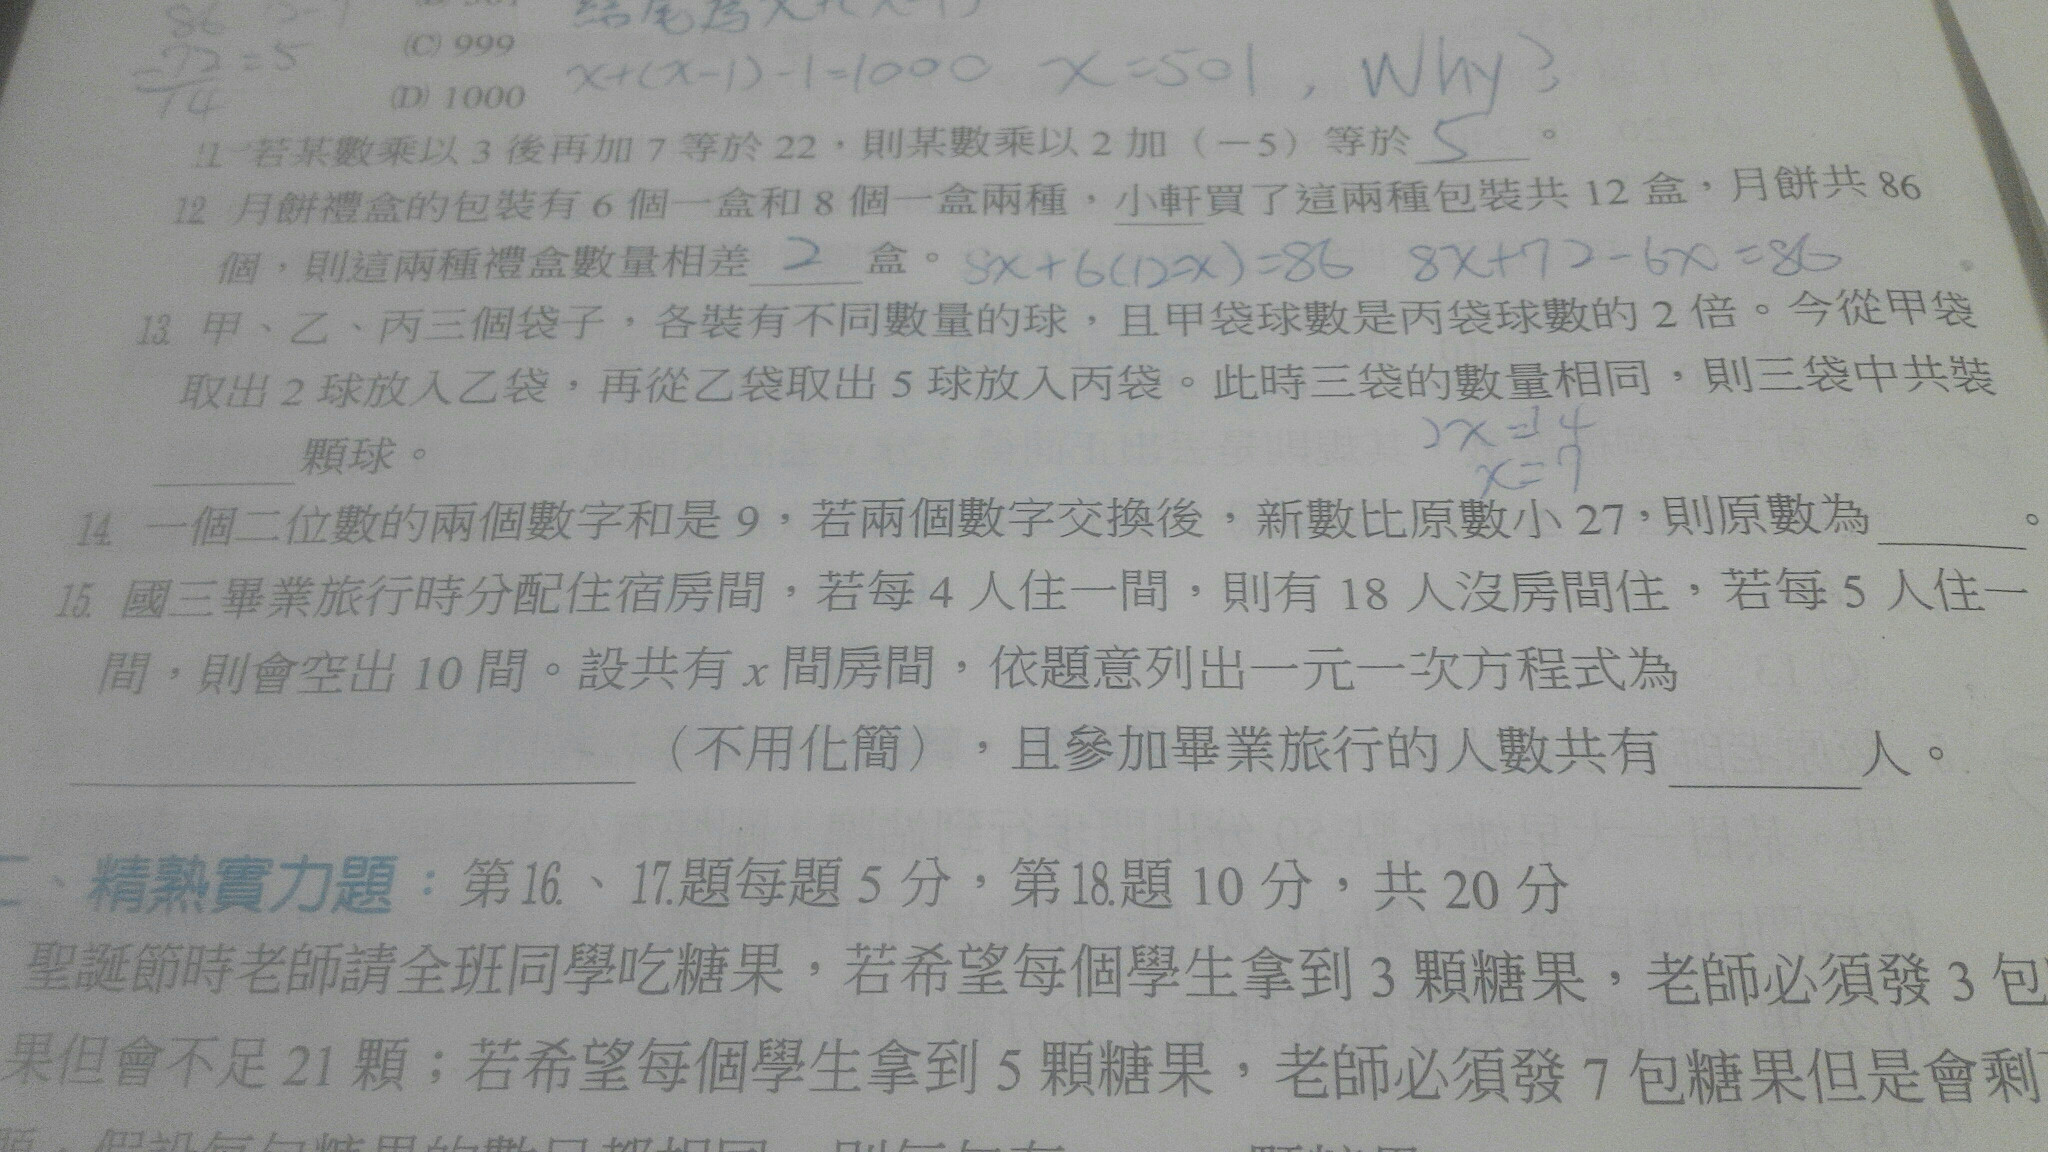 86
-72
=14
=5
結尾為x+(x-1)
(C) 999
x+(x-1)-1=1000 x=501, Why?
(D) 1000
11 若某數乘以 3 後再加 7 等於 22，則某數乘以 2 加（－5）等於 5 。
12 月餅禮盒的包裝有 6 個一盒和 8 個一盒兩種，小軒買了這兩種包裝共 12 盒，月餅共 86
個，則這兩種禮盒數量相差 2 盒。 8x+6(12-x)=86 8x+72-6x=86
13. 甲、乙、丙三個袋子，各裝有不同數量的球，且甲袋球數是丙袋球數的 2 倍。今從甲袋
取出 2 球放入乙袋，再從乙袋取出 5 球放入丙袋。此時三袋的數量相同，則三袋中共裝
2x=14
______ 顆球。
x=7
14. 一個二位數的兩個數字和是 9，若兩個數字交換後，新數比原數小 27，則原數為______。
15. 國三畢業旅行時分配住宿房間，若每 4 人住一間，則有 18 人沒房間住，若每 5 人住一
間，則會空出 10 間。設共有 x 間房間，依題意列出一元一次方程式為
______（不用化簡），且參加畢業旅行的人數共有______人。
二、精熟實力題：第16.、17.題每題 5 分，第18.題 10 分，共 20 分
聖誕節時老師請全班同學吃糖果，若希望每個學生拿到 3 顆糖果，老師必須發 3 包
果但會不足 21 顆；若希望每個學生拿到 5 顆糖果，老師必須發 7 包糖果但是會剩